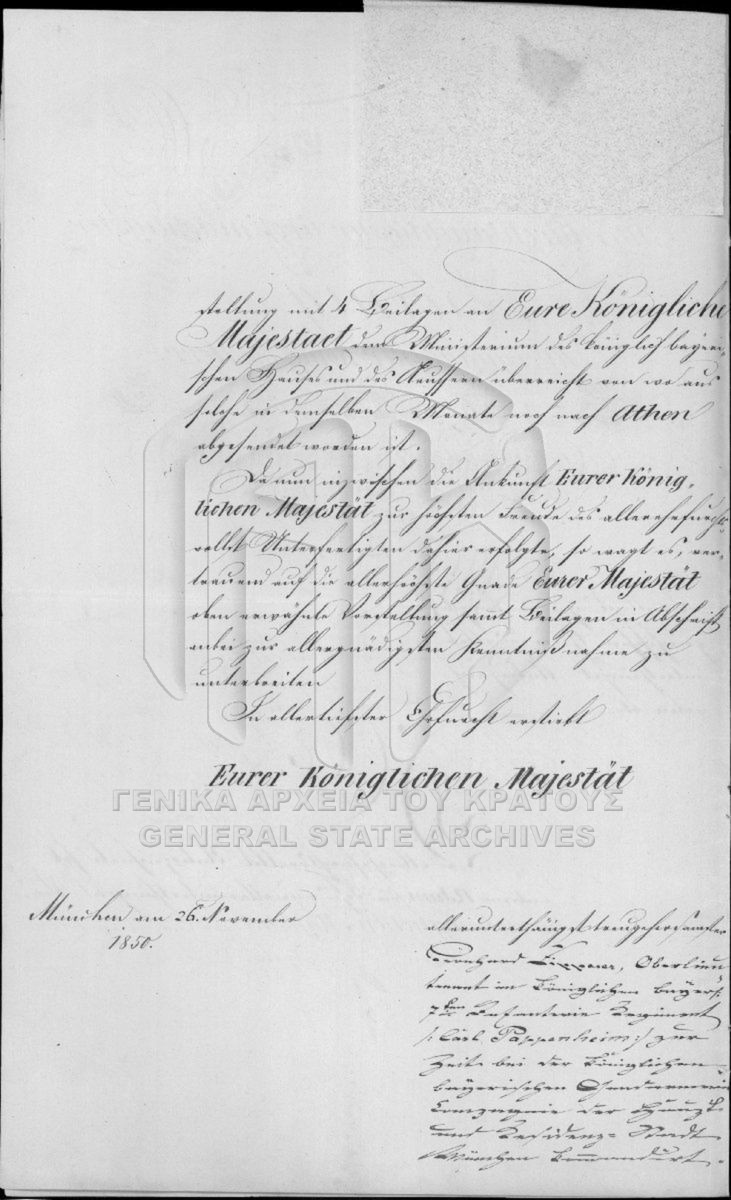 stellung mit 4 Beilagen an Eure Königliche
Majestaet dem Ministerium des königlich bayeri-
schen Hauses und des Aeussern überreicht von wo aus
solche in demselben Monate noch nach Athen
abgesendet worden ist.
Da nun inzwischen die Ankunft Eurer König-
lichen Majestät zur höchsten Freude des allerehrfurchts-
vollst Unterfertigten dahier erfolgte, so wagt es, ver-
trauend auf die allerhöchste Gnade Eurer Majestät
oben erwähnte Vorstellung sammt Beilagen in Abschrift
anbei zur allergnädigsten Kenntnißnahme zu
unterbreiten
In allertiefster Ehrfurcht erstirbt
Eurer Königlichen Majestät
ΓΕΝΙΚΑ ΑΡΧΕΙΑ ΤΟΥ ΚΡΑΤΟΥΣ
GENERAL STATE ARCHIVES
München am 26. November
1850.
allerunterthänigst treugehorsamster
Oberlieu
tenant im königlichen bayer:
7ten Infanterie Regiment
/: Carl Pappenheim :/ zur
Zeit bei der königlichen
bayerischen Gendarmerie
Compagnie der Haupt-
und Residenz-Stadt
München commandirt.